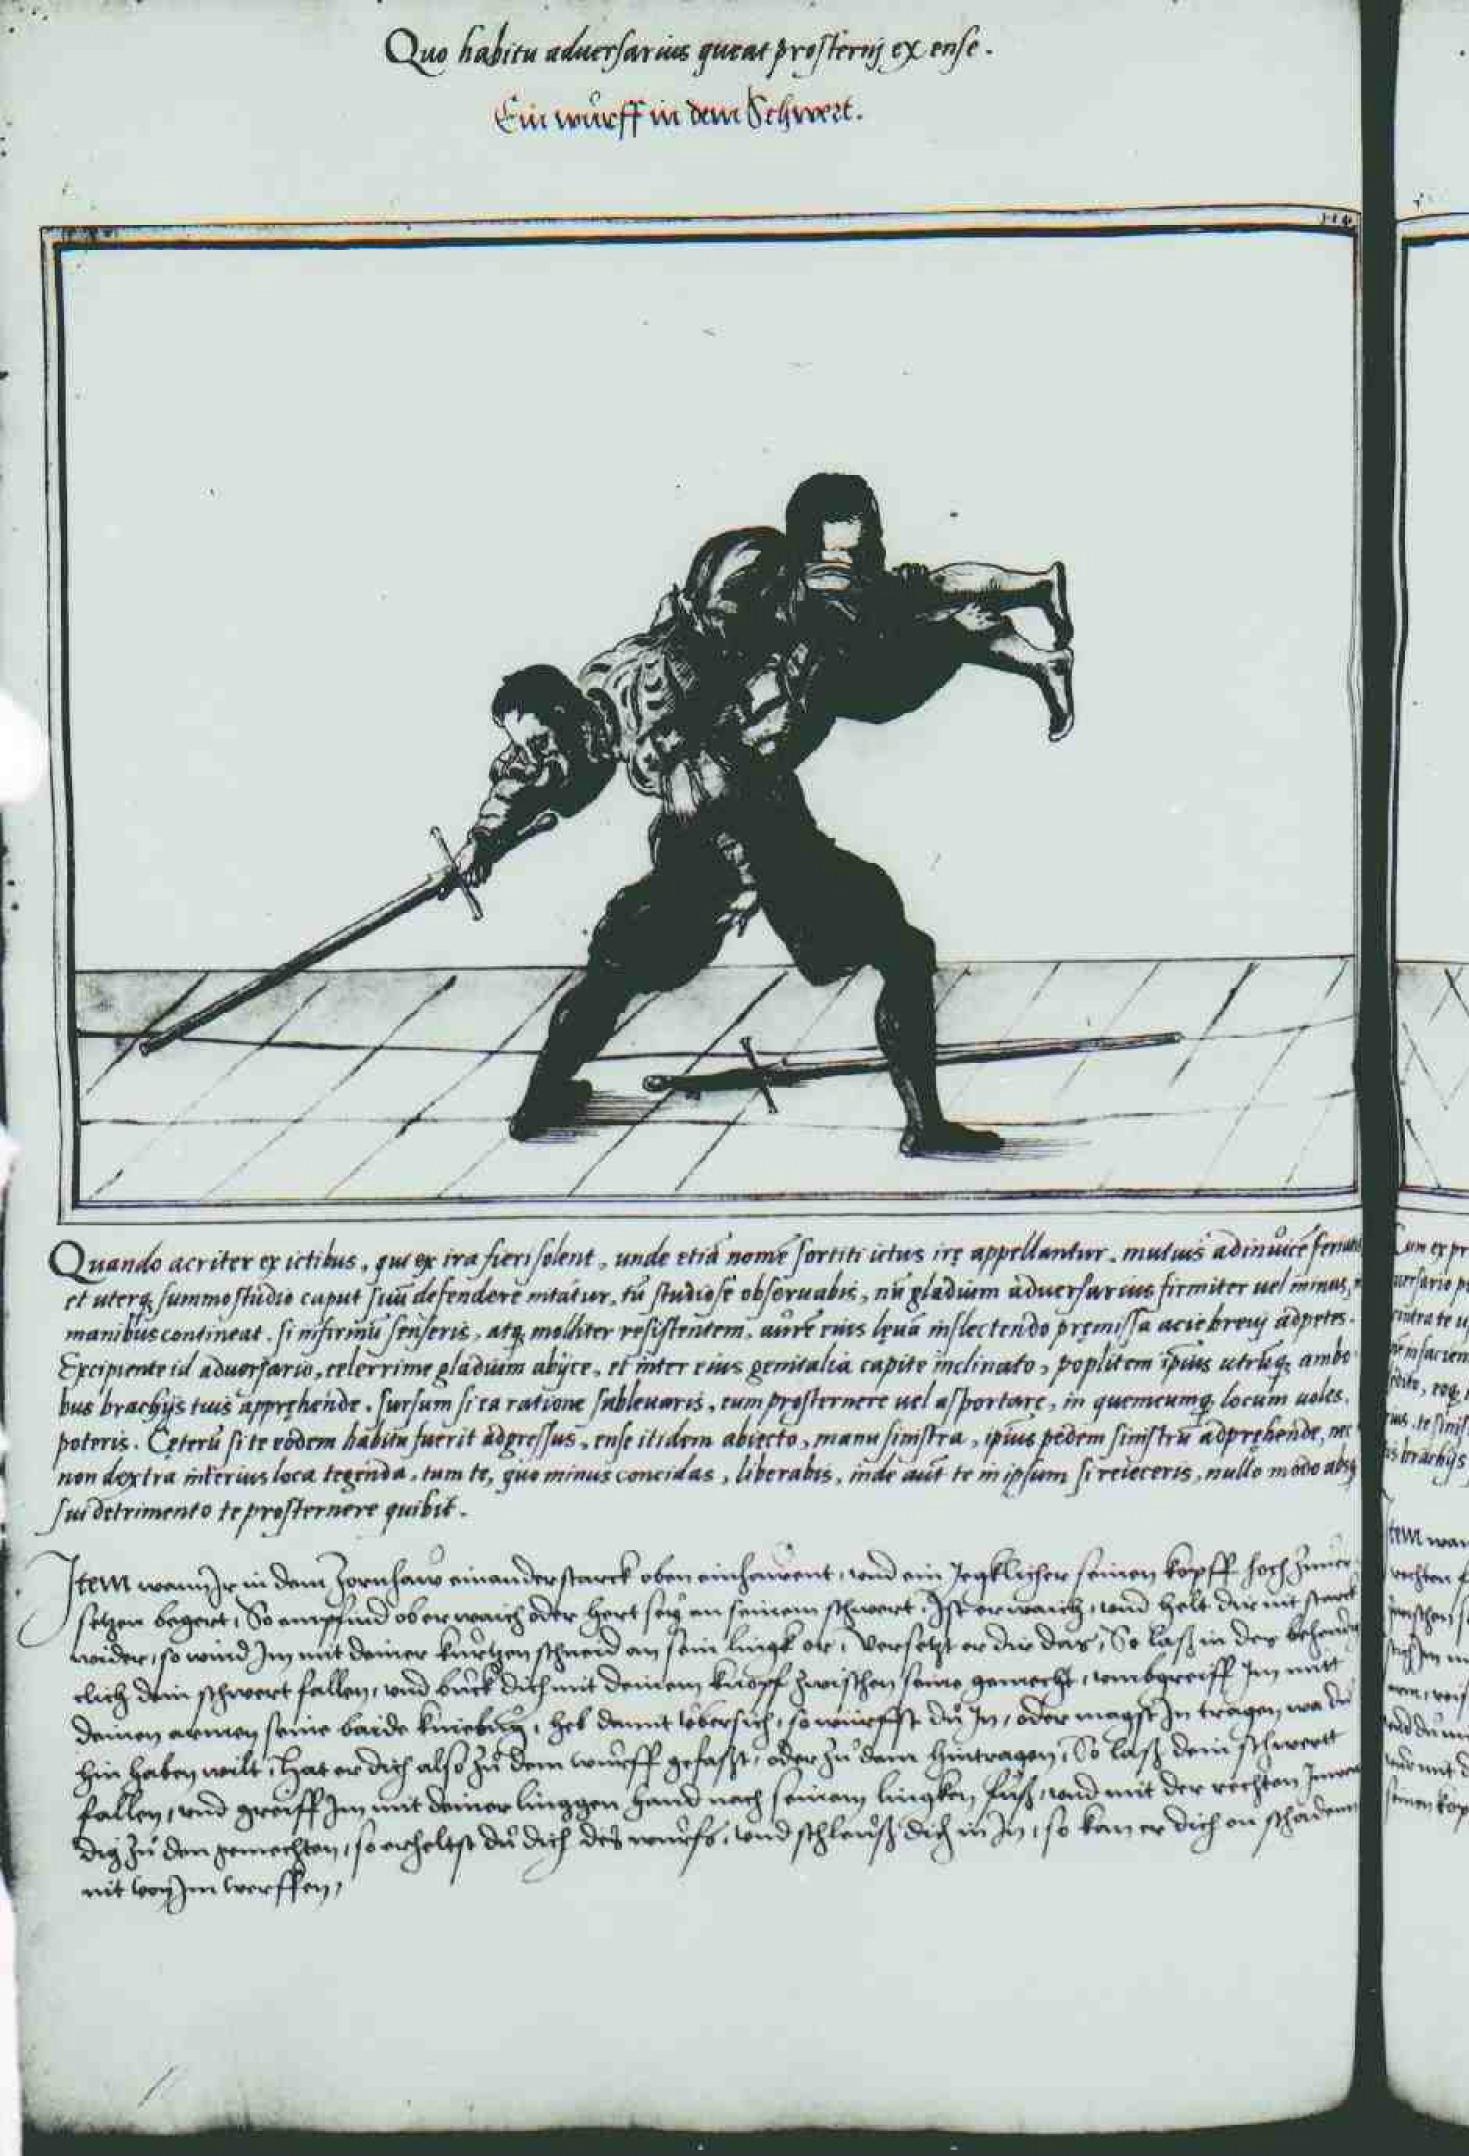 Quo habitu adversarius queat prosternj ex ense.
Ein wůrff in dem Schwert.
Quando acriter ex ictibus, qui ex ira fieri solent, unde etiã nomẽ sortiti ictus irę appellantur, mutuis adinůicẽ
et uterq summo studio caput suũ defendere nitatur, tũ studiose observabis, gladium adversarius firmiter vel minus,
manibus contineat. si infirmũ senseris, atq molliter resistentem, aurẽ eius lęvã inflectendo pręmissa acie brevj adpetes.
Excipiente id adversario, celerrime gladium abijce, et inter eius genitalia capite inclinato, poplitem ipsius utrũq ambo
bus brachijs tuis apprehende. sursum si ea ratione sublevaris, eum prosternere vel asportare, in quemcumq locum voles.
poteris. Cęterũ si te eodem habitu fuerit adgressus, ense itidem abiecto, manu sinistra, ipsius pedem sinistrũ adprehende, nec
non dextra interius loca tegenda, tum te, quo minus concidas, liberabis, inde aũt te in ipsum si reieceris, nullo modo absq
sui detrimento te prosternere quibit.
Item wann Ir in dem Zornhaw einander starck oben einhawent, und ein Jegklicher seinen kopff hoch zůver
setzen begert, So empfind ob er waich oder hert seÿ an seinem schwert, Ist er waich, und helt dir nit starck
wider, so wind Im mit deiner kůrtzen schneid an sein lingk or, Versetzt er dir das, So laß in der behend
clich dein schwert fallen, und bůck dich mit deinem knopff zwischen seine gemecht, umbgreiff Im mitt
deinen armen seine baide kniebůg, heb damit ůbersich, so wůrffst dů In, oder magst In tragen wa dů
hin haben wilt, Hat er dich also zů dem wůrff gefaßt, oder zů dem hintragen, So laß dein schwertt
fallen, und greiff Im mit deiner linggen hand nach seinem lingken fůß, und mit der rechten
dig zů den gemechten, so erheltst dů dich des wůrfs, und schleůß dich in In, so kan er dich on schaden
nit von Im werffen,